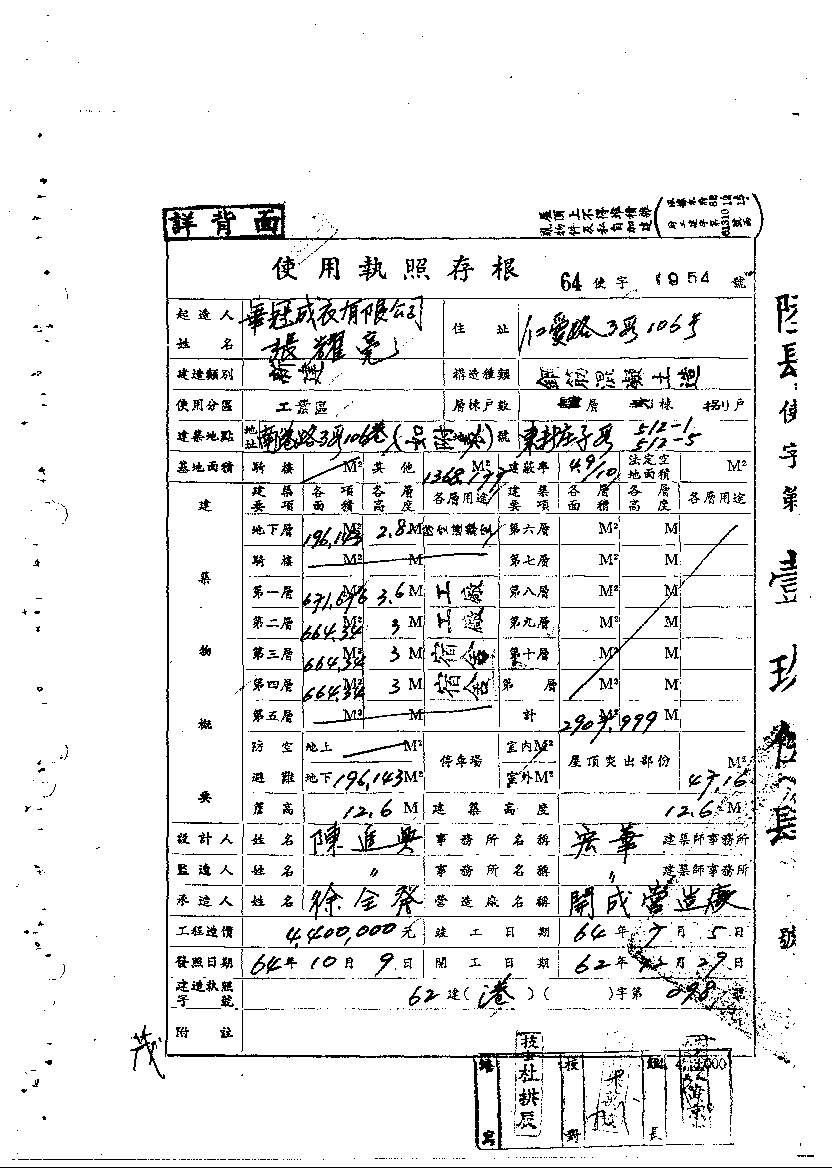 詳背面
屋頂上不得堆積雜
物件及私自加建
使用執照存根 64 使字 1954 號
起造人姓名 華冠成衣有限公司 張耀亮 住址 仁愛路3段106號
建造類別 新建 構造種類 鋼筋混凝土造
使用分區 工業區 層棟戶數 層 棟 戶
建築地點 地址 南港路3段106巷(如附表) 號 東新庄子段 512-1 512-5
基地面積 騎樓 M² 其他 1368.199 M² 建蔽率 4.9/10 法定空地面積 M²
建築物概要 建築要項 各項面積 各層高度 各層用途 建築要項 各層面積 各層高度 各層用途
地下層 196.143 M² 2.8 M 第六層 M² M
騎樓 M² M 第七層 M² M
第一層 671.696 M² 3.6 M 工廠 第八層 M² M
第二層 664.34 M² 3 M 工廠 第九層 M² M
第三層 664.34 M² 3 M 宿舍 第十層 M² M
第四層 664.34 M² 3 M 宿舍 第 層 M² M
第五層 M² M 計 M² M
防空避難 地上 M² 停車場 室內M² 屋頂突出部份 47.16 M²
地下 196.143 M² 室外M²
簷高 12.6 M 建築高度 12.6 M
設計人 姓名 陳進興 事務所名稱 宏華 建築師事務所
監造人 姓名 〃 事務所名稱 〃 建築師事務所
承造人 姓名 徐全發 營造廠名稱 開成營造廠
工程造價 4,400,000 元 竣工日期 64年7月5日
發照日期 64年10月9日 開工日期 62年12月29日
建造執照字號 62建(港)( )字第 098 號
附註
茂
填寫 技士杜拱辰 校對 組長
使字第壹玖 號